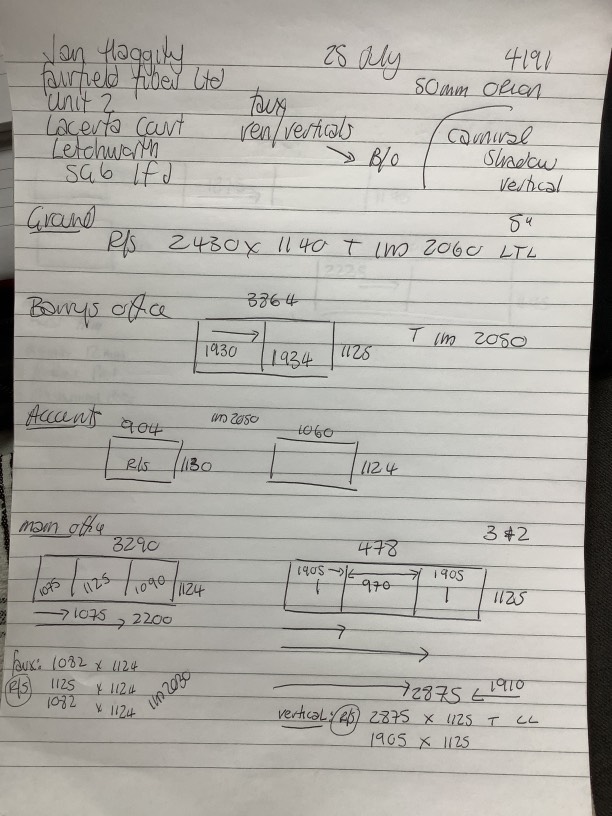 Jan Haggity 28 July 4191
Fairfield Fiber Ltd 50mm Orion
Unit 2 faux
Lacerta Court ven/verticals Carnival
Letchworth → B/O Shadow
SG6 1FJ vertical
Ground 5"
R/S 2430 x 1140 T im 2060 LTL
Barrys office 3864
→ 1930 1934 1125 T im 2050
Accounts 904 im 2050 1060
R/S 1130 1124
main office 3290 478 3 #2
1075 1125 1090 1124 1905 → 970 1905 1125
→ 1075 → 2200
faux: 1082 x 1124
R/S 1125 x 1124 im 2030 → 2875 ← 1910
1082 x 1124 vertical: R/S 2875 x 1125 T CL
1905 x 1125